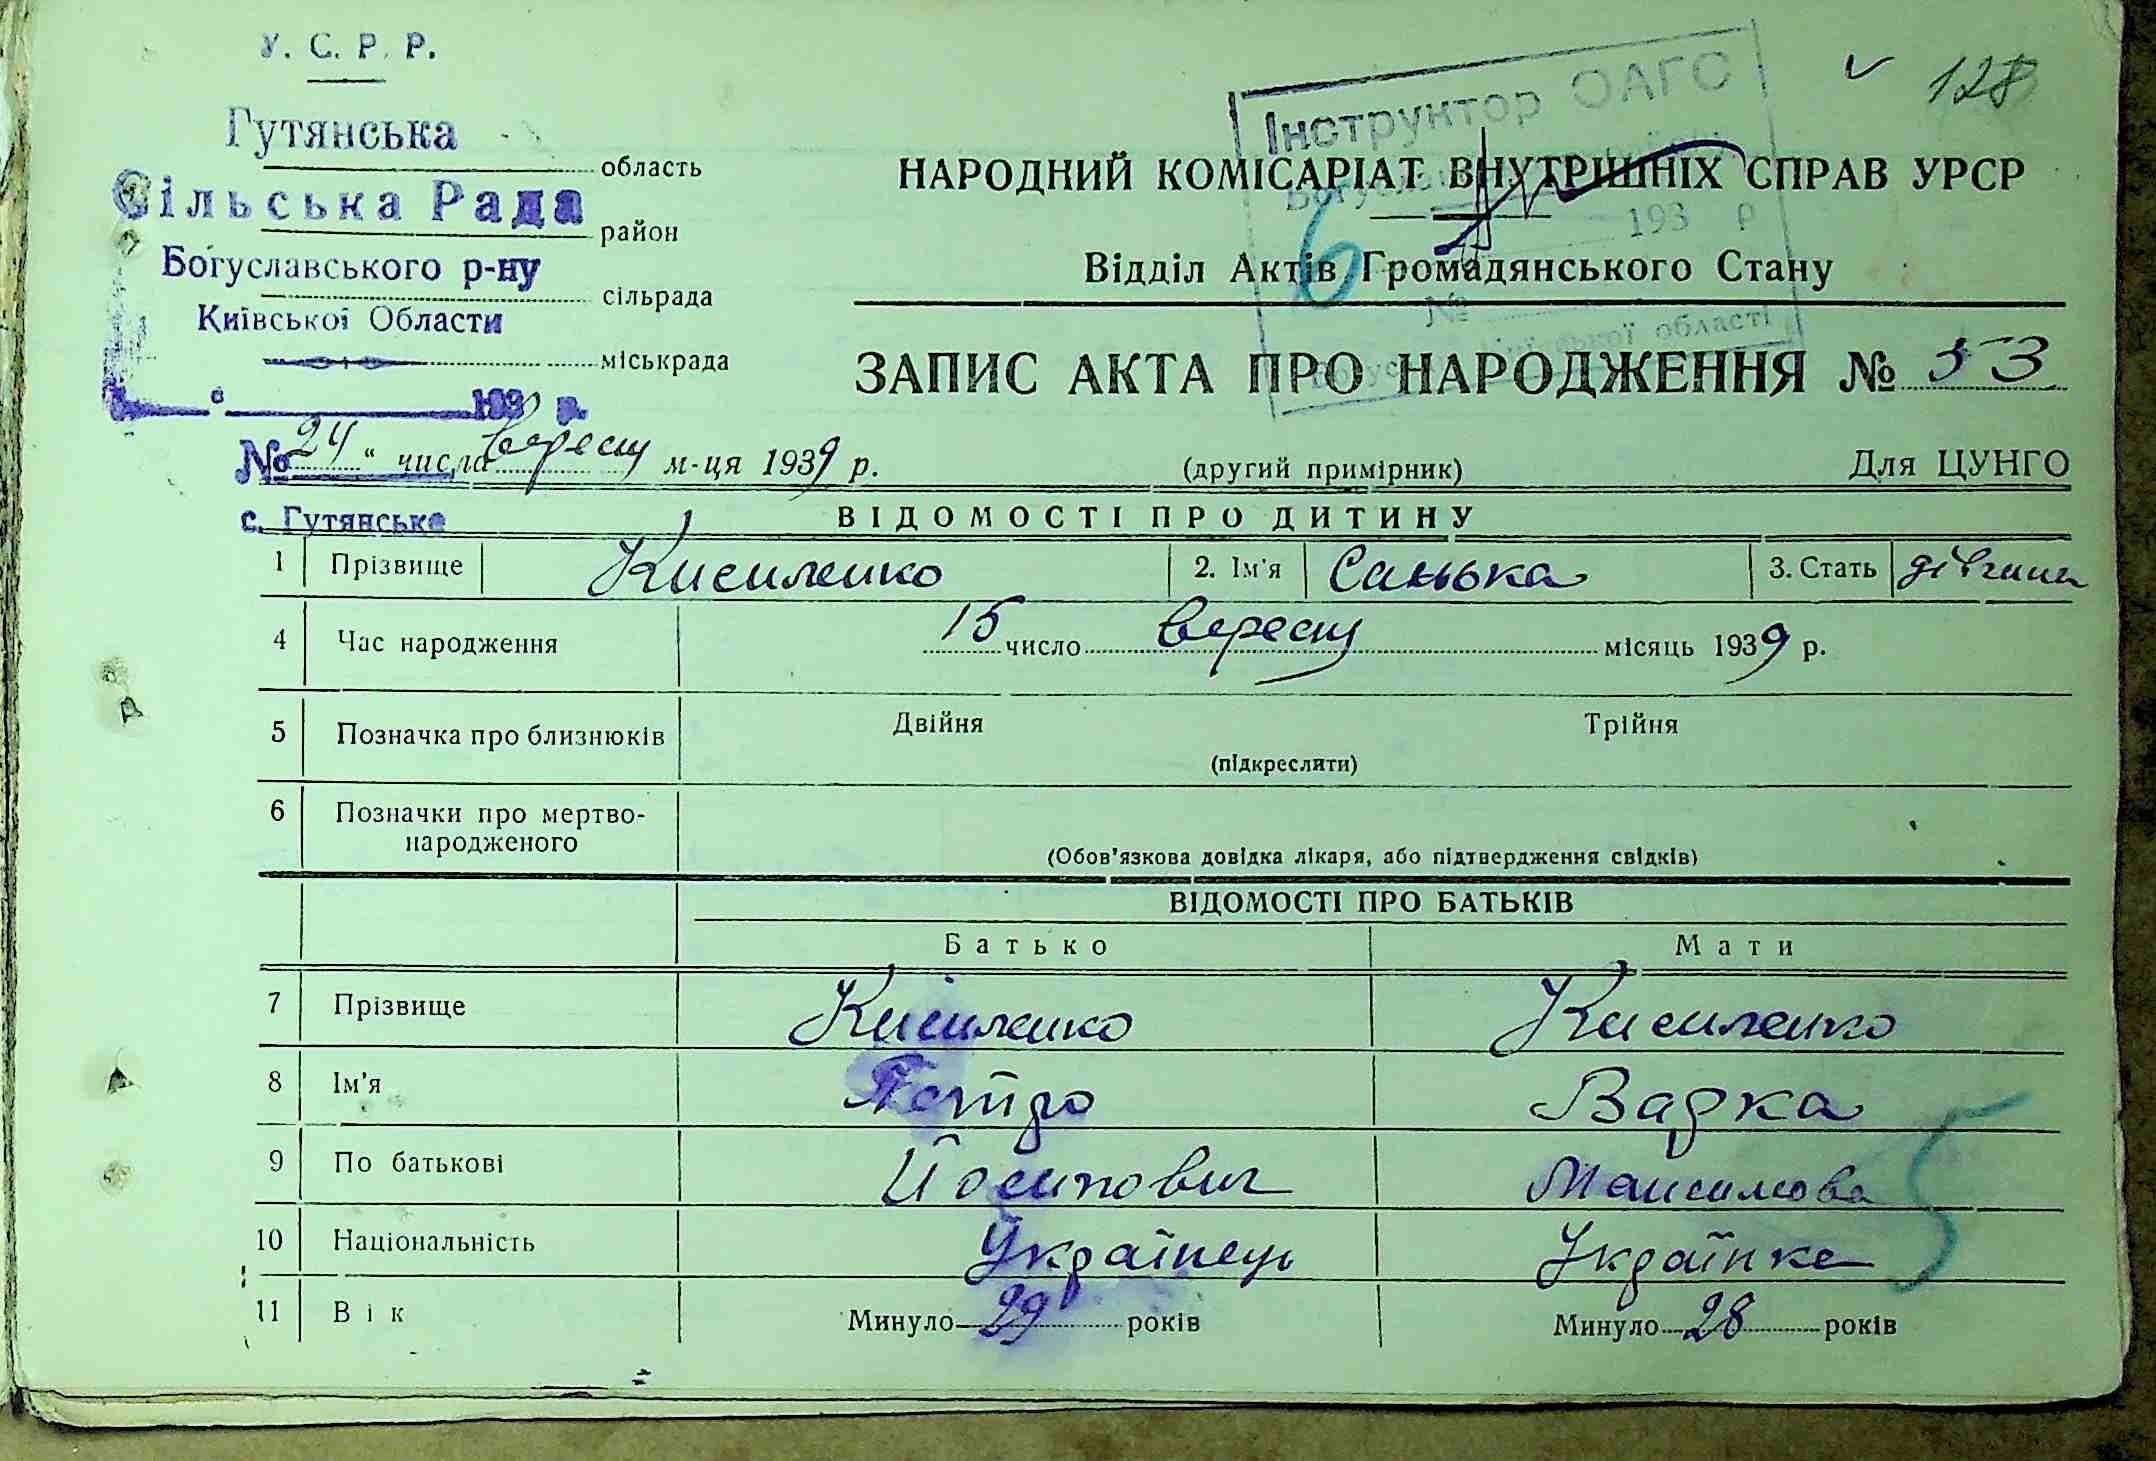 У. С. Р. Р.
128
Гутянська
область
Інструктор ОАГС
Сільська Рада
район
НАРОДНИЙ КОМІСАРІАТ ВНУТРІШНІХ СПРАВ УРСР
193 р
Богуславського р-ну
сільрада
6
Відділ Актів Громадянського Стану
№
Київської Области
міськрада
київської області
ЗАПИС АКТА ПРО НАРОДЖЕННЯ № 53
193 р.
№ 24 " числа вересня м-ця 1939 р.
(другий примірник)
Для ЦУНГО
с. Гутянське
ВІДОМОСТІ ПРО ДИТИНУ
1 Прізвище Кисиленко 2. Ім'я Санька 3. Стать дівчина
4 Час народження 15 число вересня місяць 1939 р.
5 Позначка про близнюків Двійня Трійня
(підкреслити)
6 Позначки про мертво-
народженого
(Обов'язкова довідка лікаря, або підтвердження свідків)
ВІДОМОСТІ ПРО БАТЬКІВ
Батько Мати
7 Прізвище Кисиленко Кисиленко
8 Ім'я Петро Варка
9 По батькові Йосипович Максимова
5
10 Національність Українець Українка
11 Вік Минуло 29 років Минуло 28 років